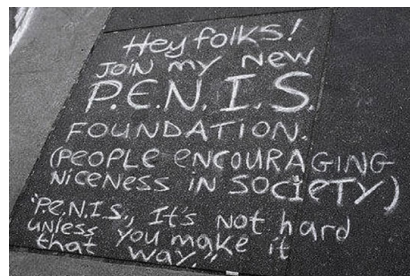 Hey folks!
JOIN my New
P.E.N.I.S.
FOUNDATION.
(PEOPLE ENCOURAGING
NICENESS IN SOCIETY)
"P.E.N.I.S., It's Not hard
unless you make it
that way."